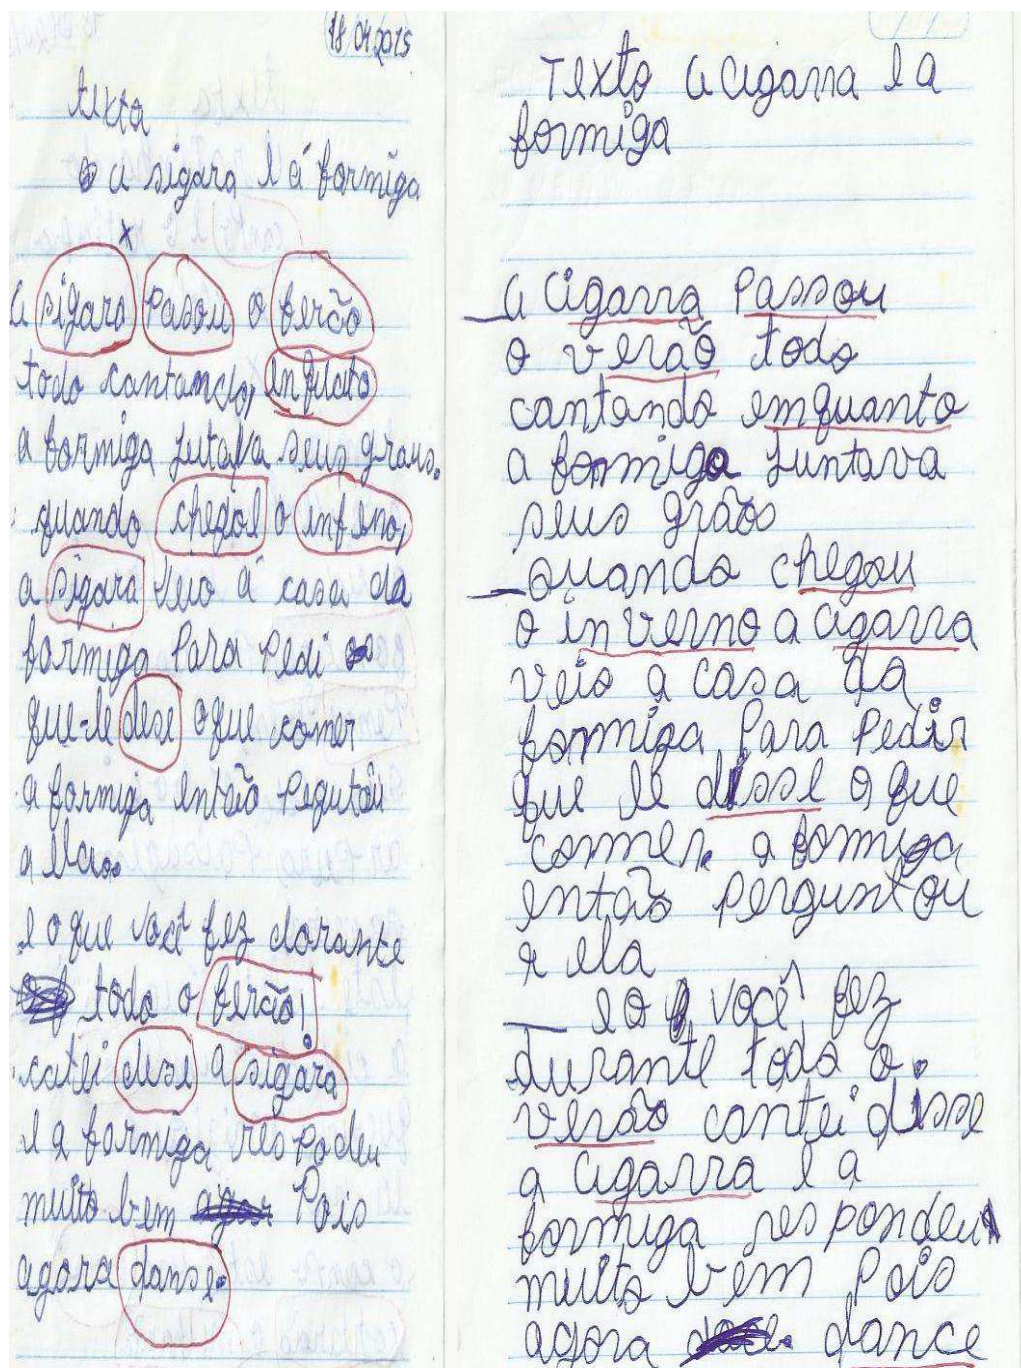 18 04 2015
texto
a sigara e á formiga
x
a sigara pasou o berão
todo cantando, infuato
a formiga jutava seus graus.
quando chegol o infeno,
a sigara veio á casa da
formiga para pedi
que-le dese o que comer
a formiga então pegutou
a ela:
e o que você fez dorante
todo o berão!
catei dise a sigara
e a formiga respodeu
muito bem agor pois
agora danse.
Texto a cigarra e a
formiga
_ a cigarra passou
o verão todo
cantando emquanto
a formiga juntava
seus grãos
_ quando chegou
o inverno a cigarra
veio a casa da
formiga para pedir
que le disse o que
comer. a formiga
então perguntou
a ela
_ e o q você fez
durante todo o.
verão cantei disse
a cigarra e a
formiga respondeu
muito bem pois
agora dance